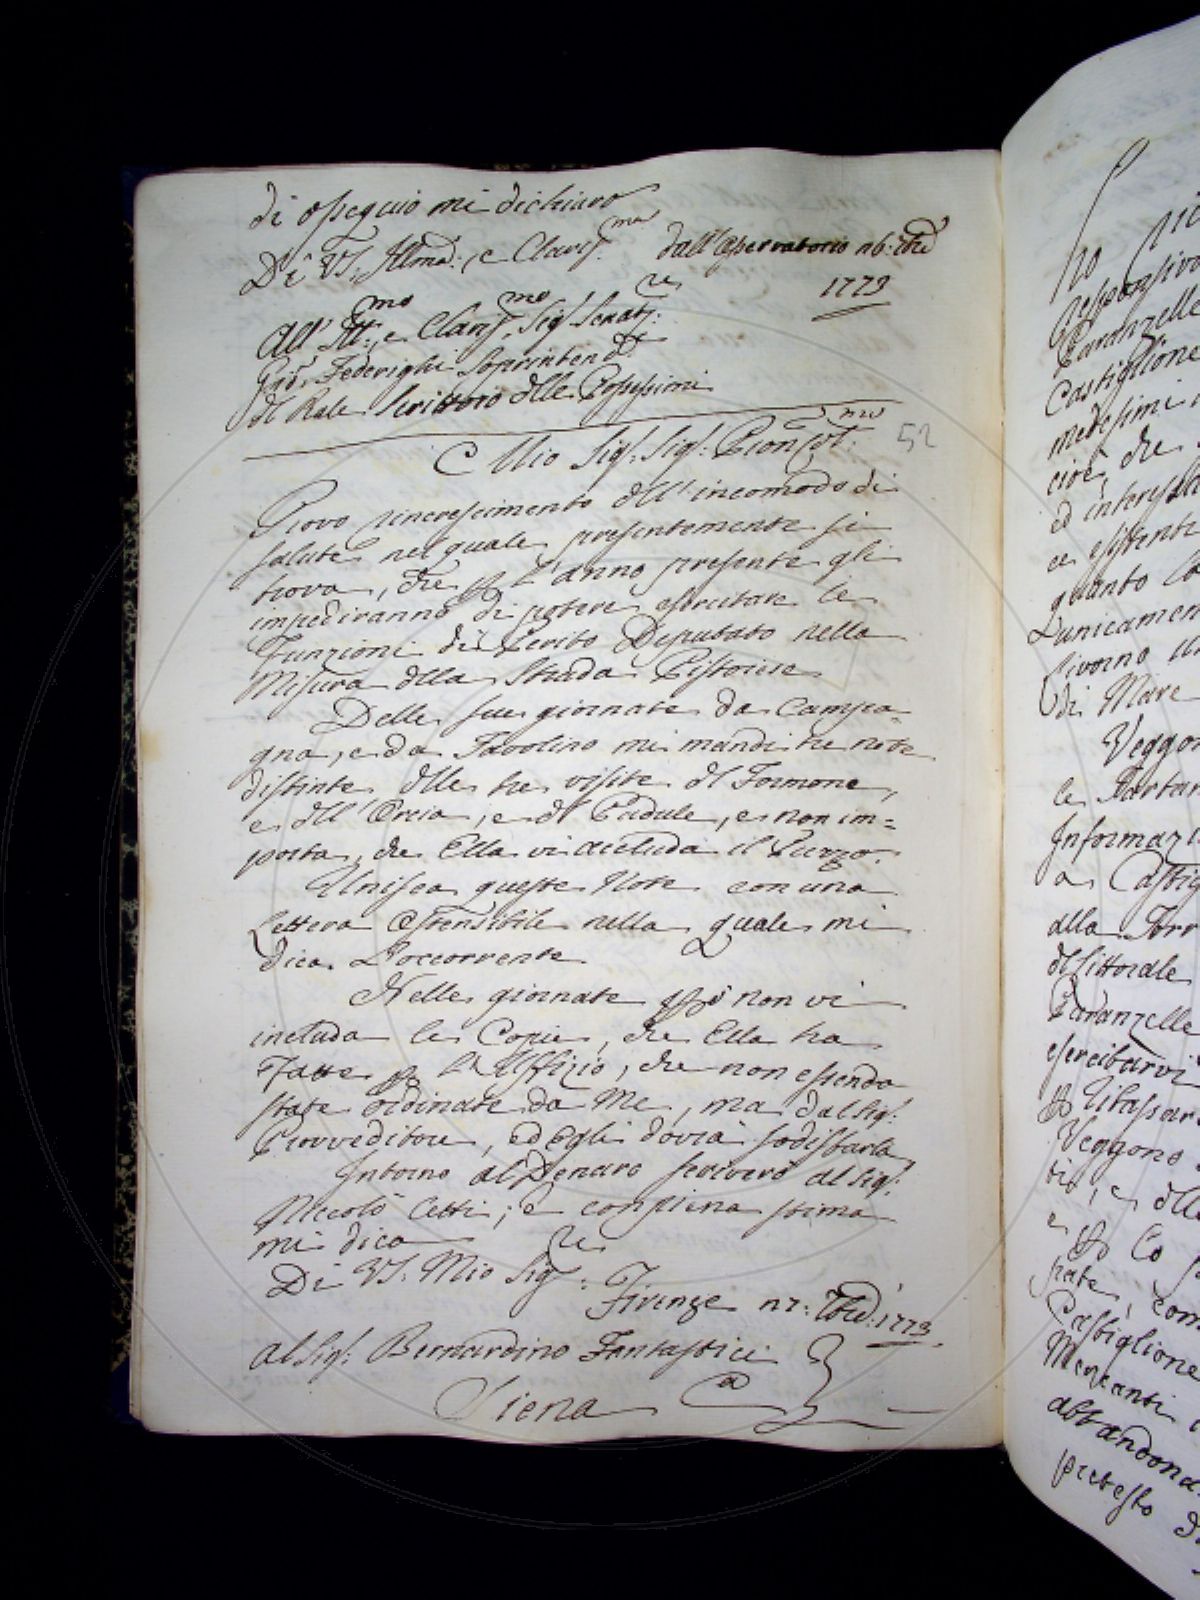 di ossequio mi dichiaro
Di VS. Illma: e Clariss.ma dall'Osservatorio 26: 
1773
All' Ill:mo e Clariss.mo Sig.re Senat:
Gio. Federighi Soprintend.te
dl Rale Scrittoio dlle Possessioni
Mio Sig: Sig: Pron Col.mo 52
Provo rincrescimento dll' incomodo di
salute nel quale presentemente si
trova, che p l' anno presente gli
impediranno di potere esercitare le
Funzioni di Perito Deputato nella
Misura dlla Strada Pistoiese
Delle sue giornate da Campa=
gna, e da Tavolino mi mandi tre note
distinte dlle tre visite dl Formone,
e dll' Orcia, e dl Padule, e non im=
porta, che Ella vi accluda il Purzo.
Unisca queste Note con una
Lettera Ostensibile nella quale mi
dica L'occorrente
Nelle giornate però non vi
includa le Copie, che Ella ha
Fatte p l' Uffizio, che non essendo
state ordinate da Me, ma dal Sig.
Provveditore, ed Egli dovrà sodisfarla
Intorno al Denaro scriverò al Sig.
Niccolò Cetti; e con piena stima
mi dico
Di VS. Mio Sig.re
Firenze 27: 1773
Al Sig. Bernardino Fantastici
Siena
responsivo
Paranzelle
Castiglione
medesimi
cioè, che
ed interessa
esistente
quanto
L'unicamen
Livorno
di Mare
Veggon
le Tartan
Informazi
a Castig
alla Torr
dl Littorale
Paranzelle
esercitarvi
Veggono
e dlle
p lo
state, com
Castiglione
Mercanti
abbandona
pretesto